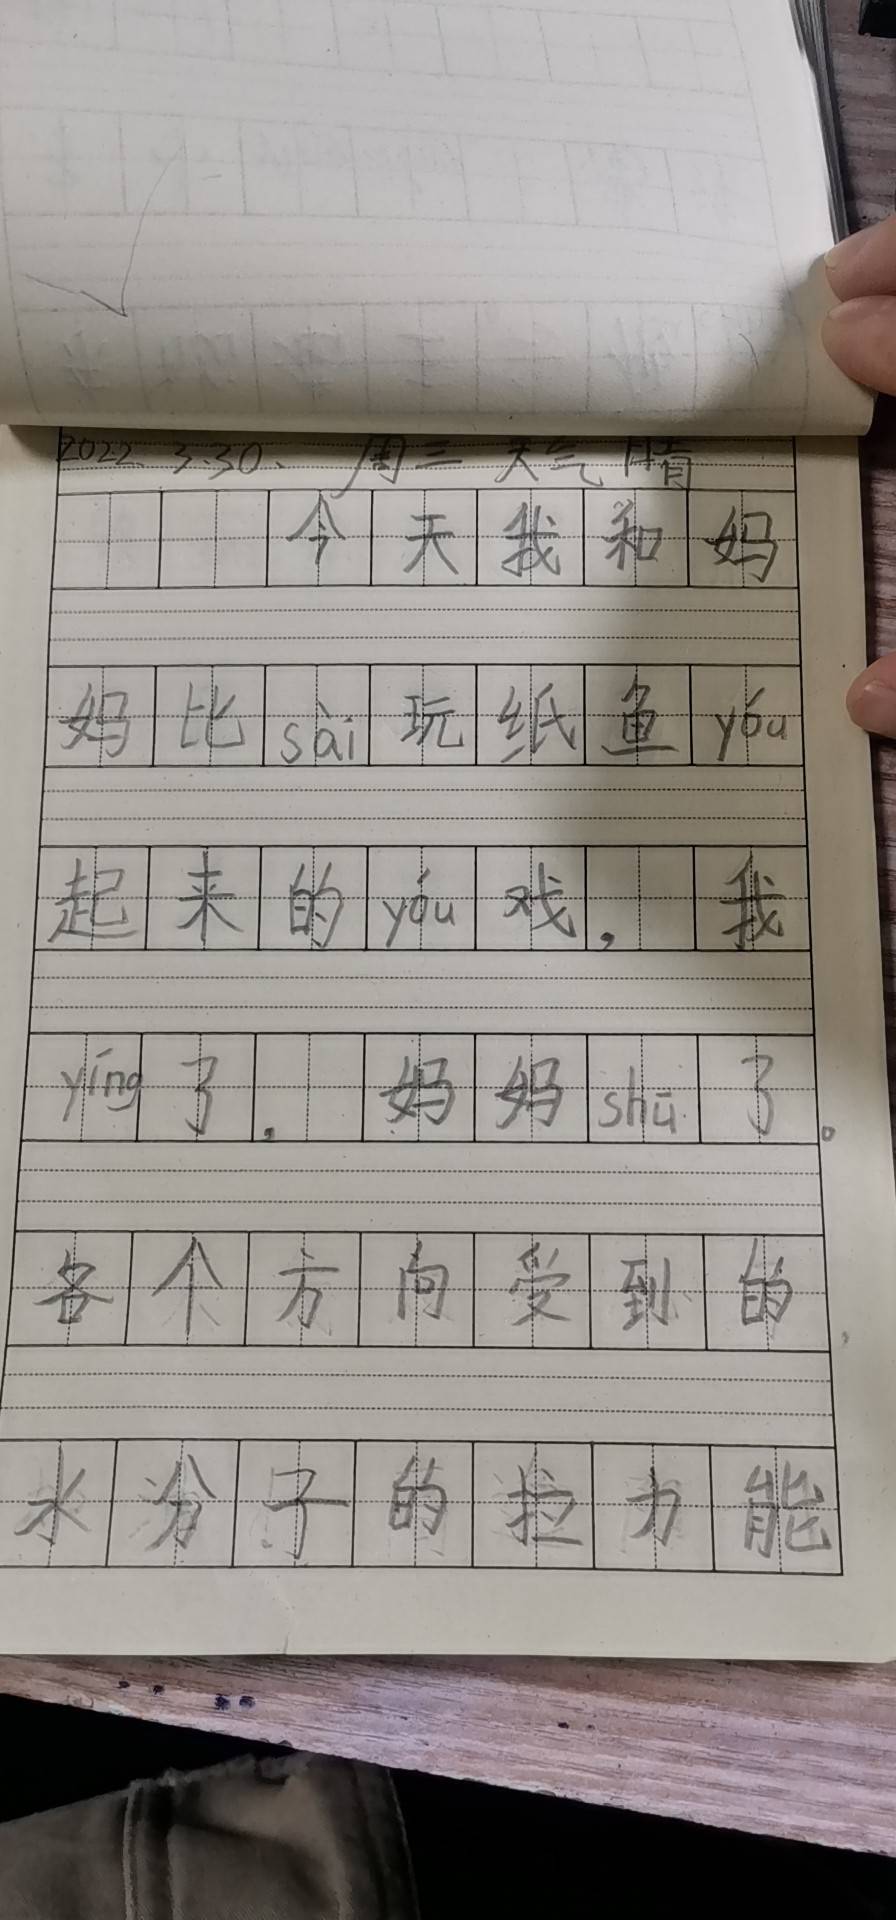 2022.3.30. 周三 天气晴
今天我和妈
妈比sài玩纸鱼yóu
起来的yóu戏,我
yíng了,妈妈shū了。
各个方向受到的
水分子的拉力能